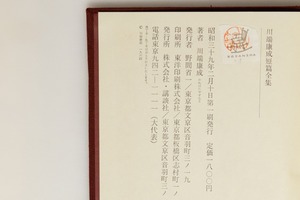 川端康成短篇全集
昭和三十九年二月十日第一刷発行　定価一八〇〇円
著者　川端康成
発行者　野間省一／東京都文京区音羽町三ノ一九
印刷所　東洋印刷株式会社／東京都板橋区志村町一ノ
発行所　株式会社・講談社／東京都文京区音羽町三ノ
電話東京九四二－一一一一（大代表）